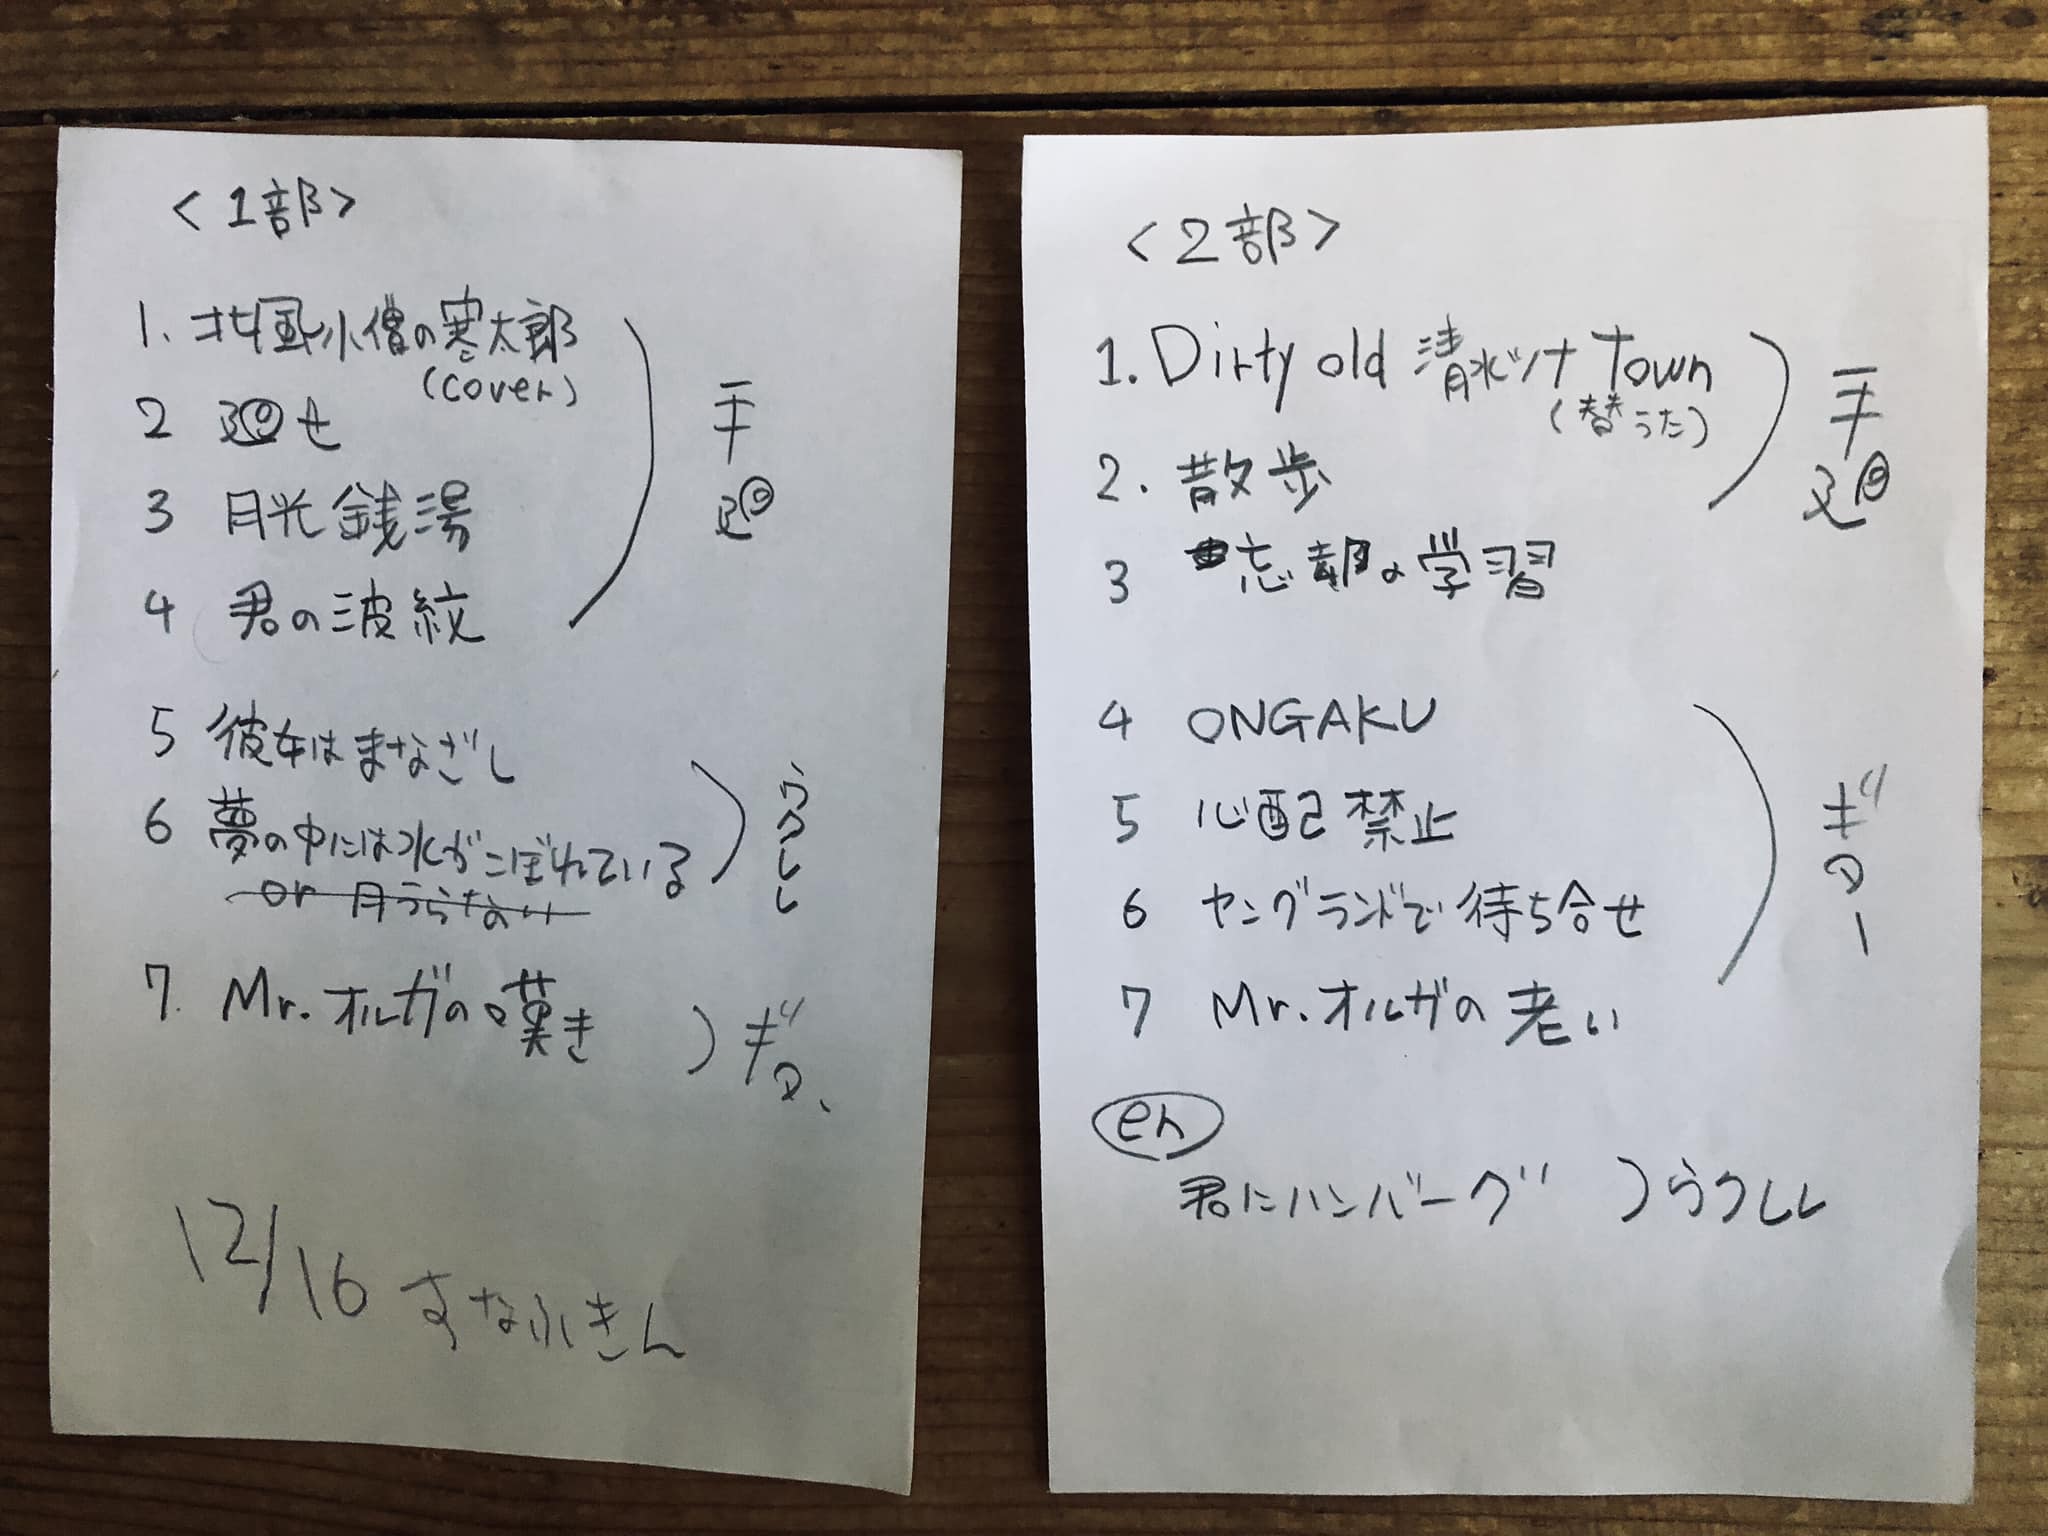 <1部>
1. 北風小僧の寒太郎
(cover)
2 廻せ
3 月光銭湯
4 君の波紋
手廻
5 彼女はまなざし
6 夢の中には水がこぼれている
or 月うらない
うクレレ
7. Mr.オルガの嘆き
ギター
12/16 すなふきん
<2部>
1. Dirty old 清水ソナ Town
(替うた)
2. 散歩
手廻
3 忘却の学習
4 ONGAKU
5 心配禁止
6 ヤングランドで待ち合せ
7 Mr.オルガの老い
ギター
en
君にハンバーグ
うクレレ